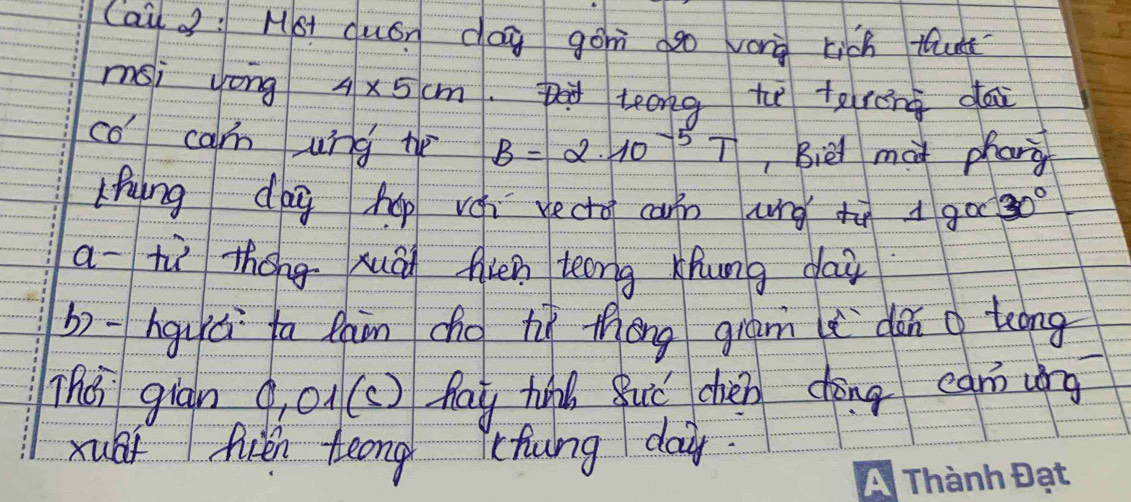 Câu 2: Một cuộn dây gồm 20 vòng kích thước
mỗi vòng 4 x 5 cm. Đặt trong từ trường đều
có cảm ứng từ B = 2.10⁻⁵ T, Biết mặt phẳng
khung dây hợp với vectơ cảm ứng từ 1 góc 30°
a- từ thông xuất hiện trong khung dây
b) - người ta làm cho từ thông giảm về đến 0 trong
Thời gian 0,01(s) hãy tính suất điện động cảm ứng
xuất hiện trong khung dây.
A Thành Đạt